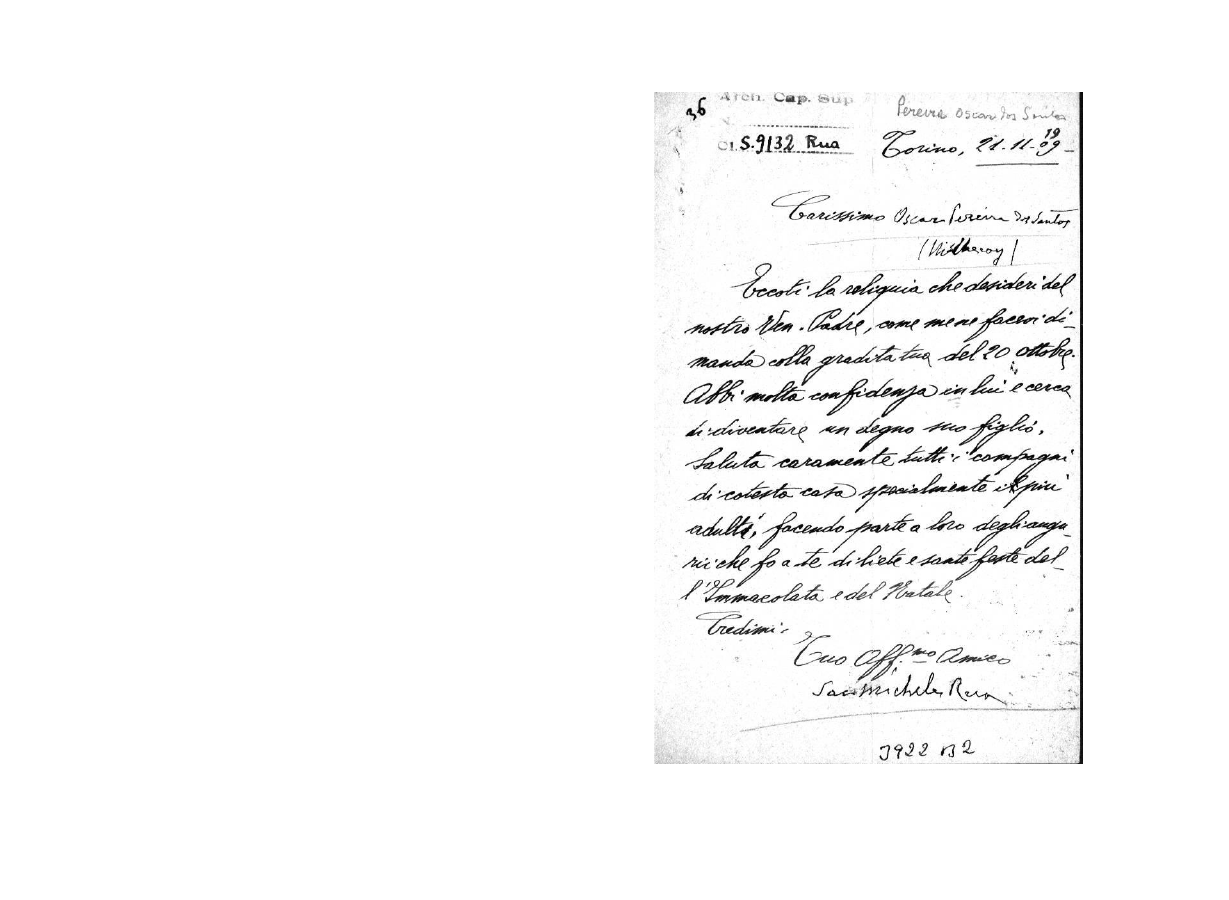 36
Arch. Cap. Sup
N.
Cl. S.9132 Rua
Pereira Oscar dos Santos
Torino, 21-11-1909
Carissimo Oscar Pereira dos Santos
(Nictheroy)
Eccoti la reliquia che desideri del
nostro Ven. Padre, come me ne facevi di-
manda colla gradita tua del 20 ottobre.
Abbi molta confidenza in lui e cerca
di diventare un degno suo figlio.
Saluta caramente tutti i compagni
di cotesta casa specialmente i più
adulti, facendo parte a loro degli augu-
rii che fo a te di liete e sante feste del-
l'Immacolata e del Natale.
Credimi
Tuo Aff.mo Amico
Sac Michele Rua
3922 B2